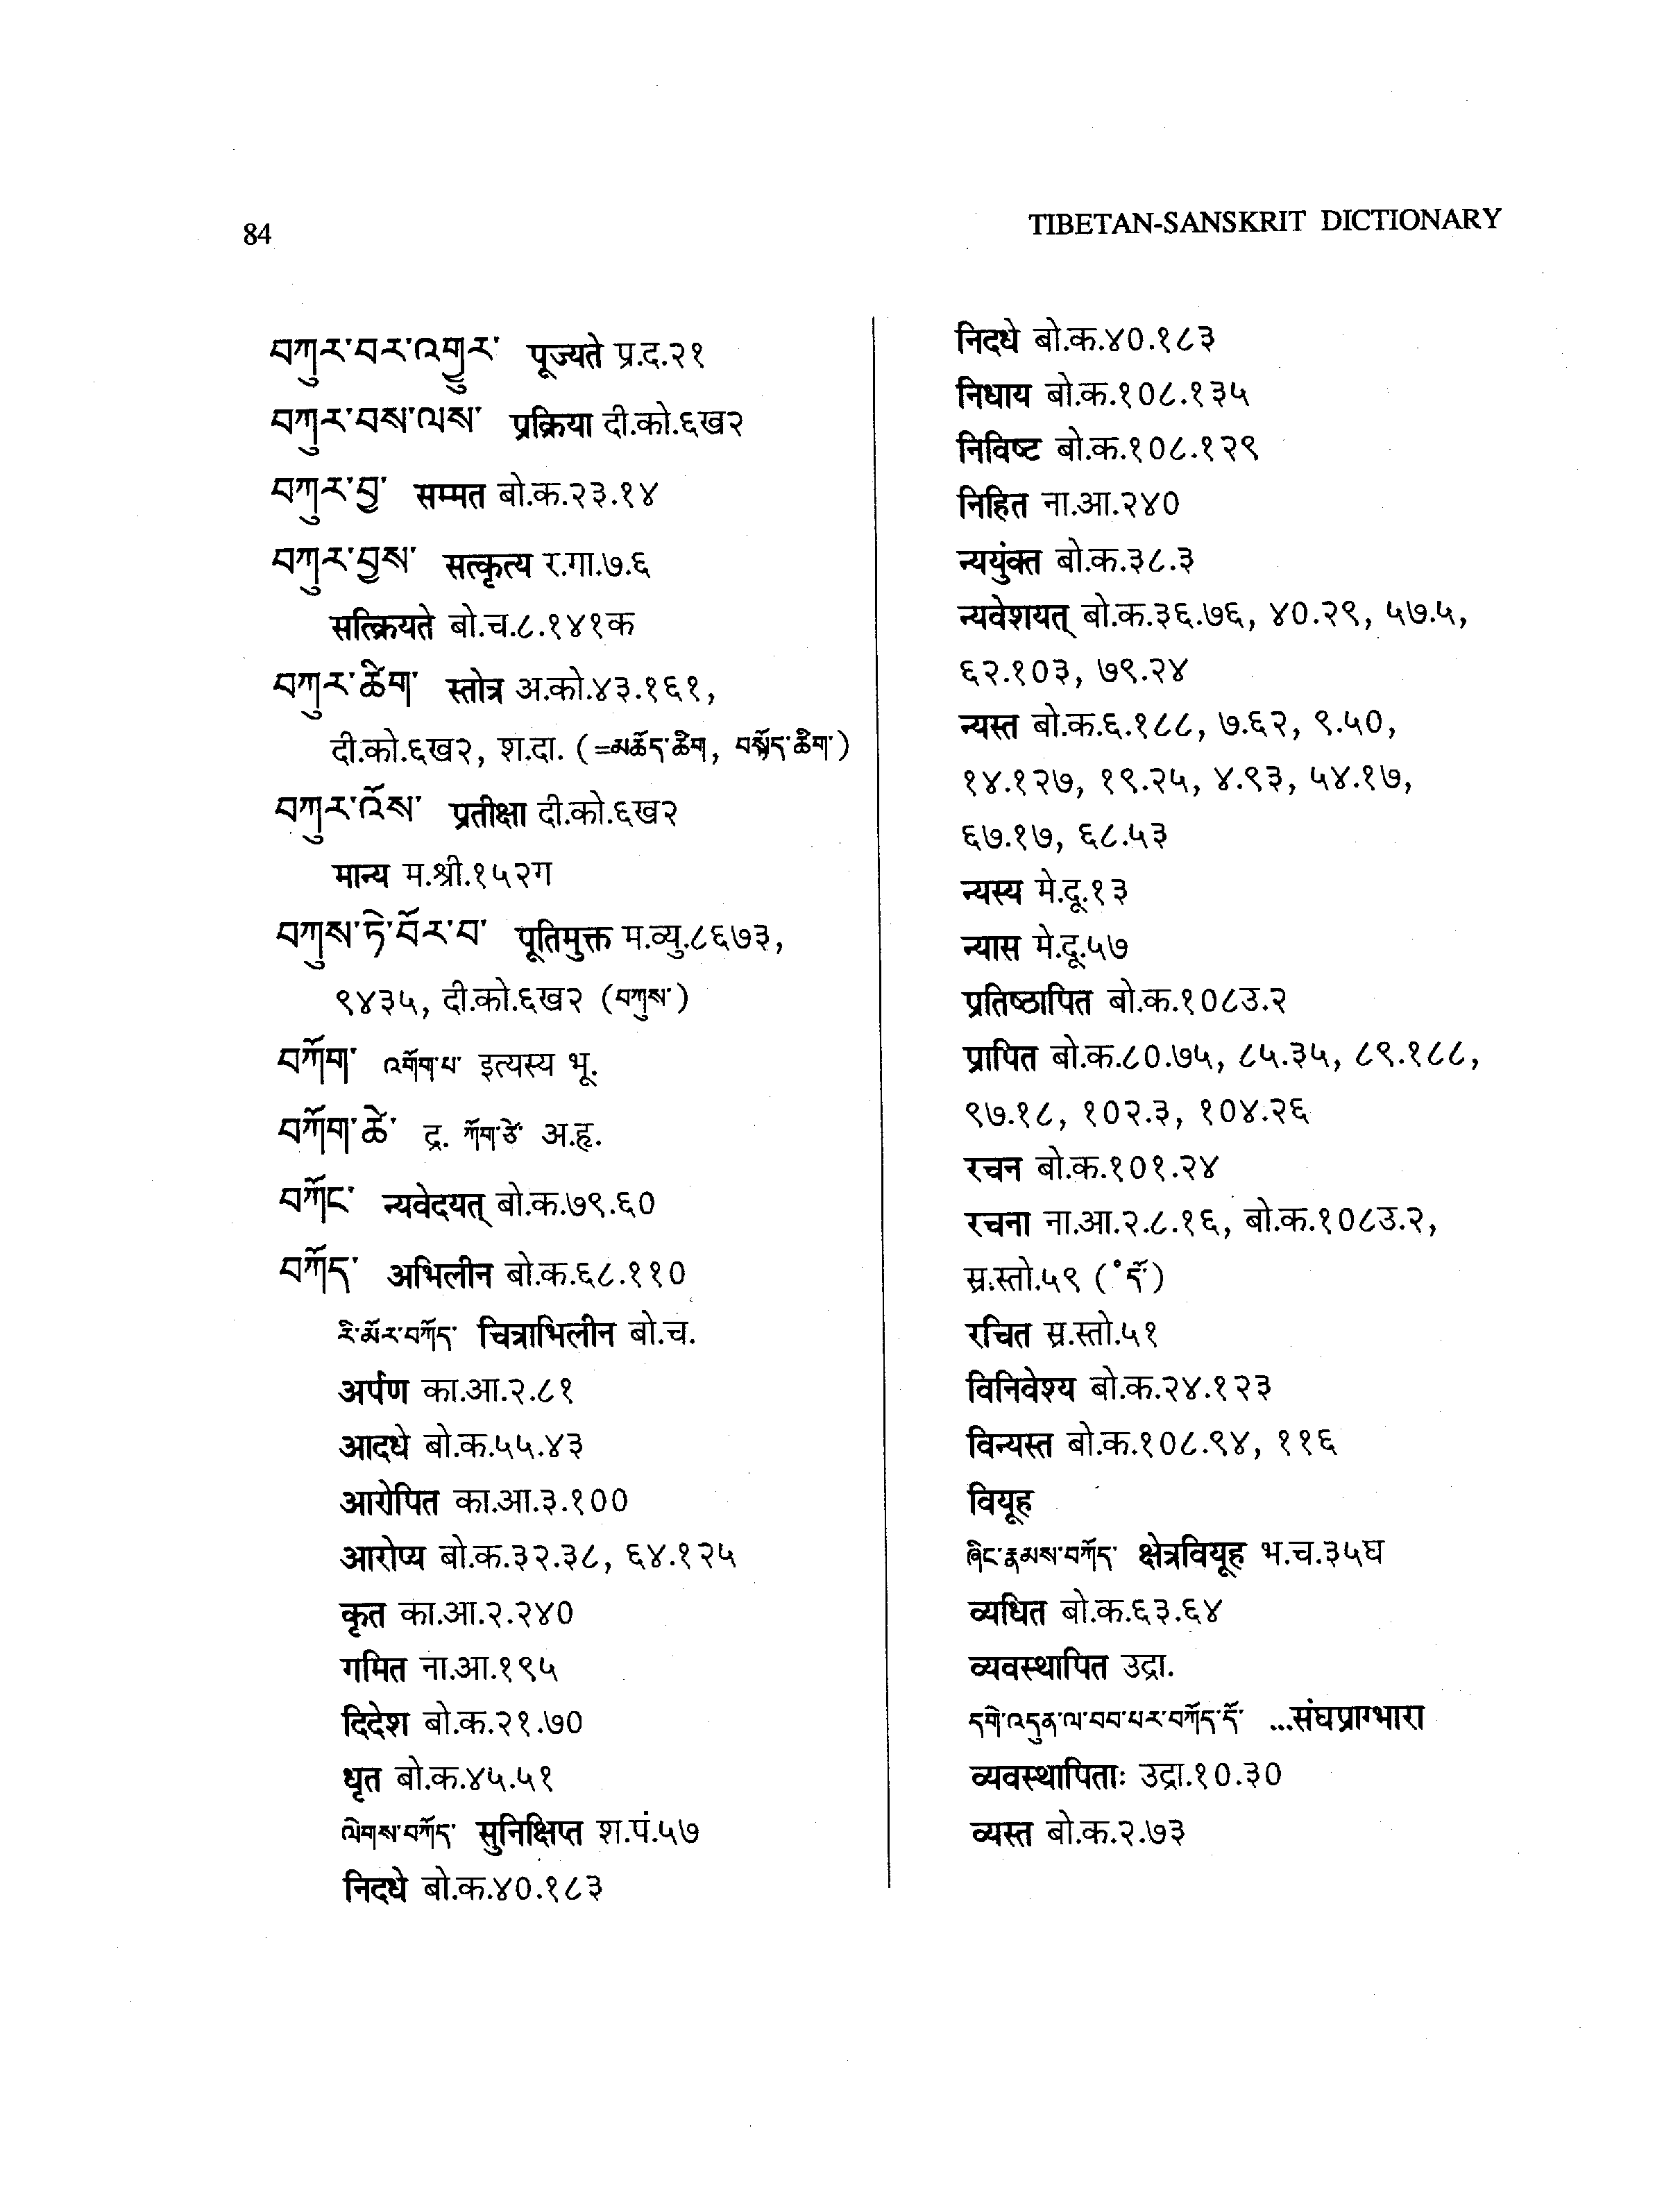 84
TIBETAN-SANSKRIT DICTIONARY
བཀུར་བར་འགྱུར་ पूज्यते प्र.द.२१
བཀུར་བས་ལས་ प्रक्रिया दी.को.६ख२
བཀུར་བྱ་ सम्मत बो.क.२३.१४
བཀུར་བྱས་ सत्कृत्य र.गा.७.६
सत्क्रियते बो.च.८.१४१क
བཀུར་ཚིག་ स्तोत्र अ.को.४३.१६१,
दी.को.६ख२, श.दा. (=མཆོད་ཚིག, བསྟོད་ཚིག་)
བཀུར་འོས་ प्रतीक्षा दी.को.६ख२
मान्य म.श्री.१५२ग
བཀུས་ཏེ་བོར་བ་ पूतिमुक्त म.व्यु.८६७३,
९४३५, दी.को.६ख२ (བཀུས་)
བཀོག་ འགོག་པ་ इत्यस्य भू.
བཀོག་ཆེ་ द्र. ཀོག་ཙེ་ अ.हृ.
བཀོང་ न्यवेदयत् बो.क.७९.६०
བཀོད་ अभिलीन बो.क.६८.११०
རི་མོར་བཀོད་ चित्राभिलीन बो.च.
अर्पण का.आ.२.८१
आदधे बो.क.५५.४३
आरोपित का.आ.३.१००
आरोप्य बो.क.३२.३८, ६४.१२५
कृत का.आ.२.२४०
गमित ना.आ.१९५
दिदेश बो.क.२१.७०
धृत बो.क.४५.५१
ལེགས་བཀོད་ सुनिक्षिप्त श.पं.५७
निदधे बो.क.४०.१८३
निदधे बो.क.४०.१८३
निधाय बो.क.१०८.१३५
निविष्ट बो.क.१०८.१२९
निहित ना.आ.२४०
न्ययुंक्त बो.क.३८.३
न्यवेशयत् बो.क.३६.७६, ४०.२९, ५७.५,
६२.१०३, ७९.२४
न्यस्त बो.क.६.१८८, ७.६२, ९.५०,
१४.१२७, १९.२५, ४.९३, ५४.१७,
६७.१७, ६८.५३
न्यस्य मे.दू.१३
न्यास मे.दू.५७
प्रतिष्ठापित बो.क.१०८उ.२
प्रापित बो.क.८०.७५, ८५.३५, ८९.१८८,
९७.१८, १०२.३, १०४.२६
रचन बो.क.१०१.२४
रचना ना.आ.२.८.१६, बो.क.१०८उ.२,
स्र.स्तो.५९ (॰དོ་)
रचित स्र.स्तो.५१
विनिवेश्य बो.क.२४.१२३
विन्यस्त बो.क.१०८.९४, ११६
वियूह
ཞིང་རྣམས་བཀོད་ क्षेत्रवियूह भ.च.३५घ
व्यधित बो.क.६३.६४
व्यवस्थापित उद्रा.
དགེ་འདུན་ལ་བབ་པར་བཀོད་དོ་ ...संघप्राग्भारा
व्यवस्थापिताः उद्रा.१०.३०
व्यस्त बो.क.२.७३